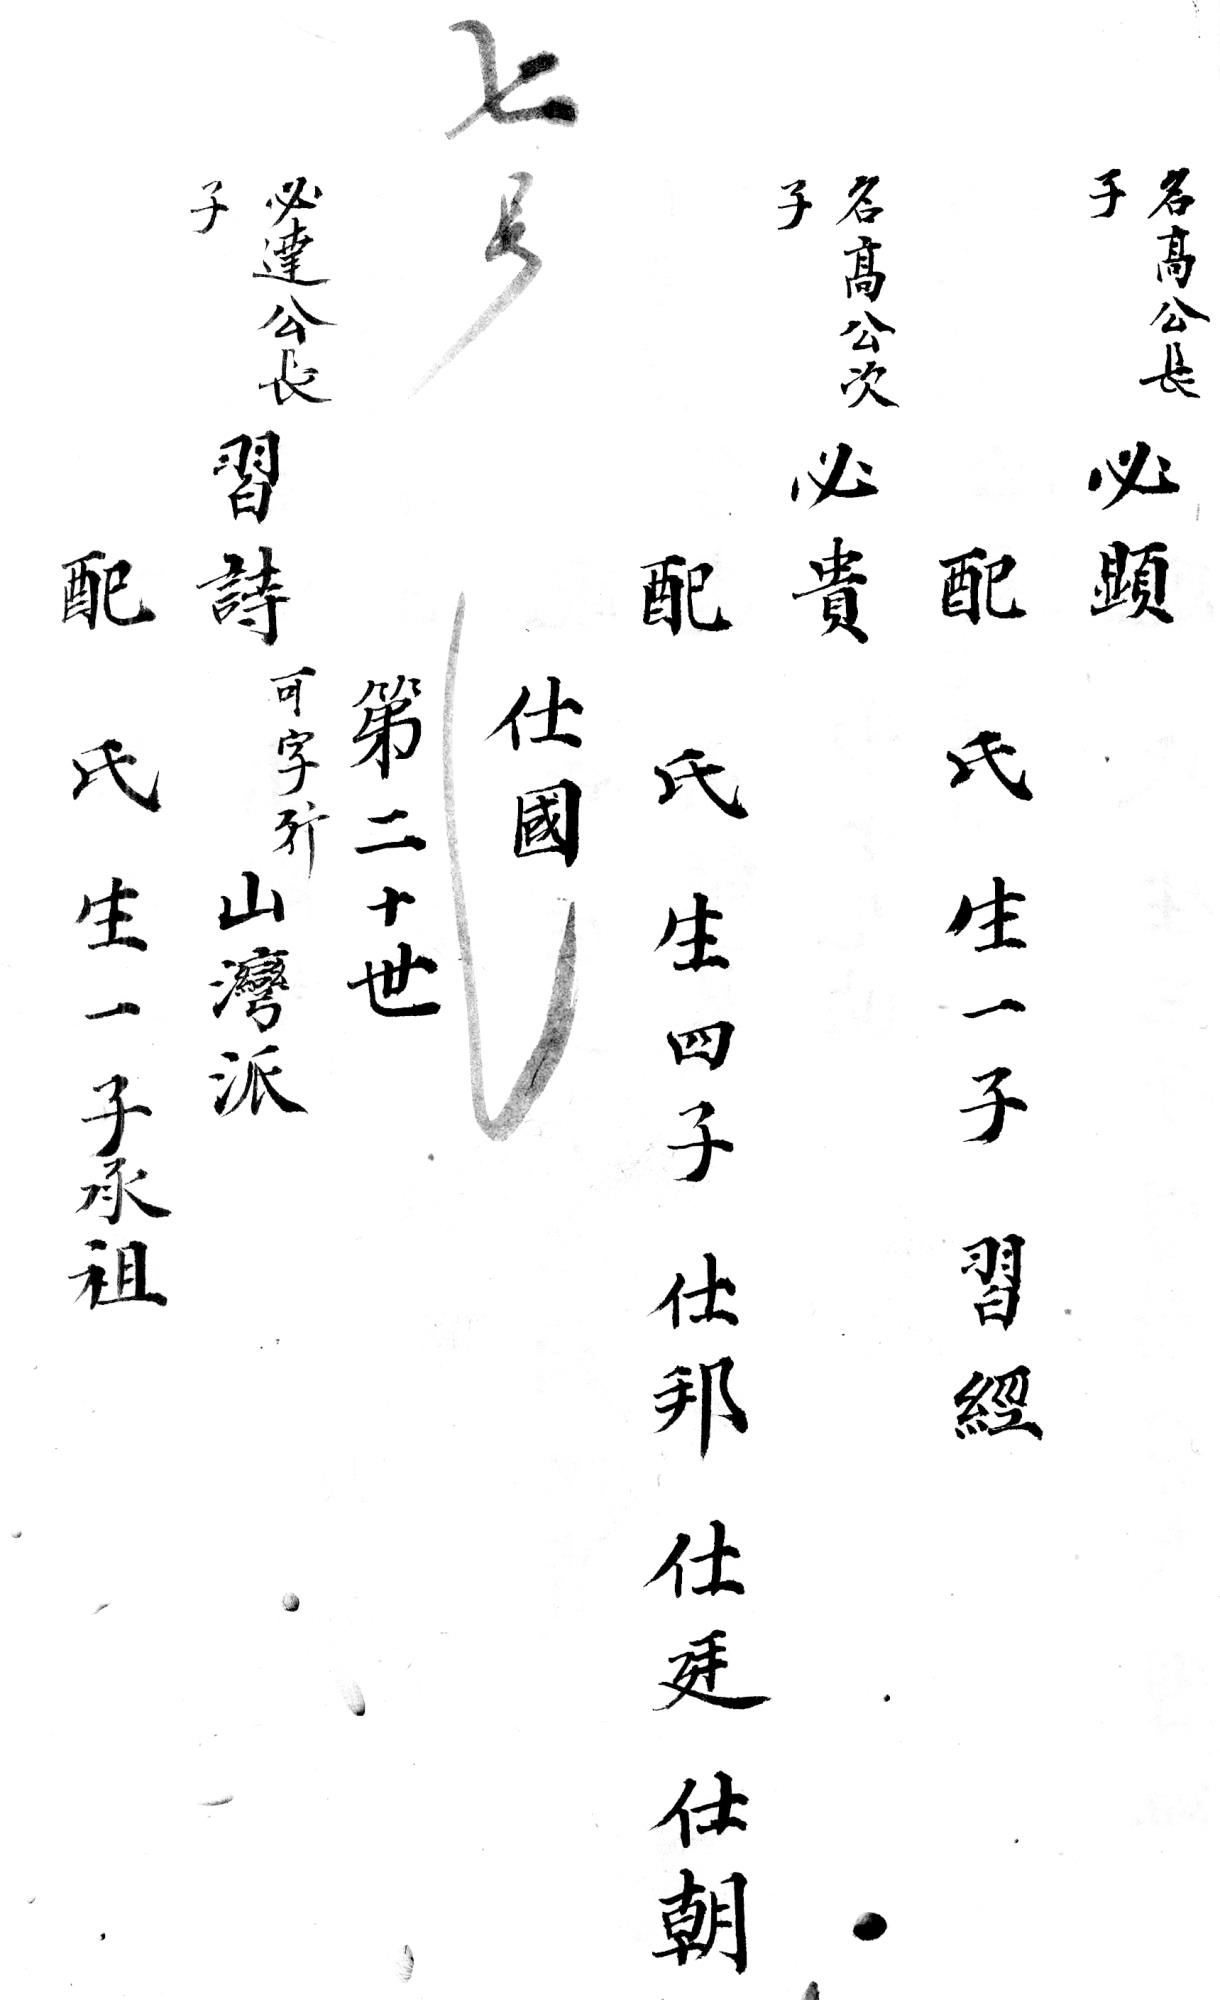 名高公長子 必顕
配 氏 生一子 習經
名高公次子 必貴
配 氏 生四子 仕邦 仕廷 仕朝
仕國
七号
第二十世
必達公長子 習詩 可字行 山灣派
配 氏 生一子承祖